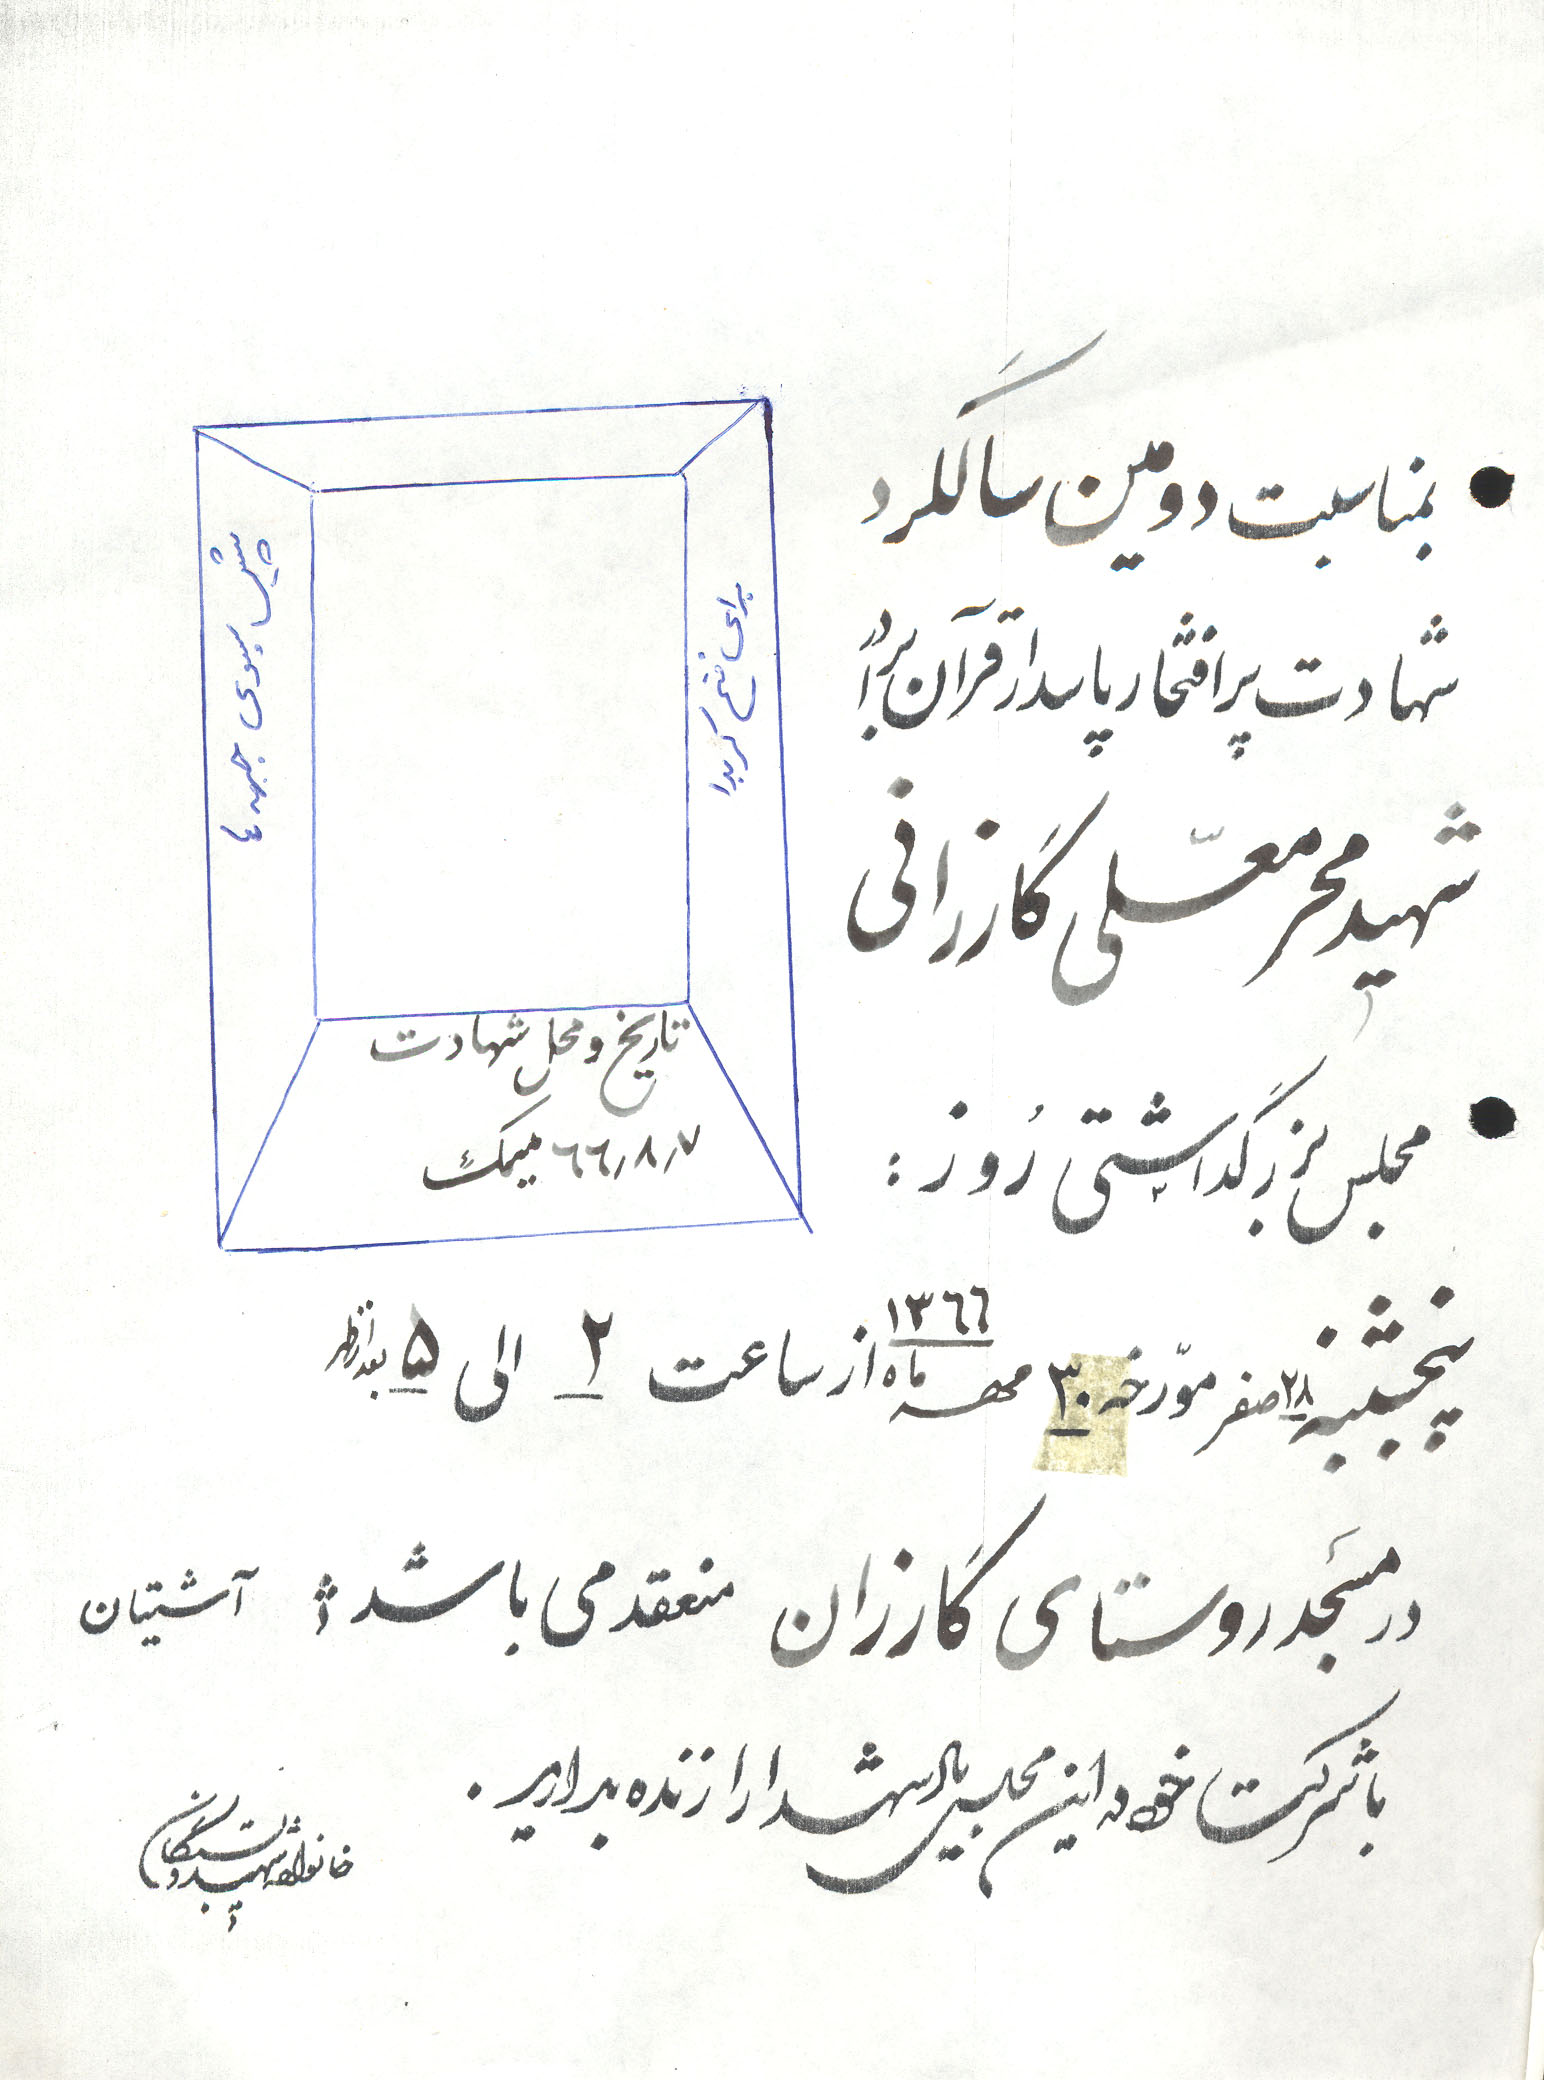 بمناسبت دومین سالگرد
شهادت پرافتخار پاسدار قرآن برادر
شهید محرمعلی گارزانی
مجلس بزرگداشتی رُوز :
پنجشبنه ۲۸ صفر مورّخه ۳۰ مهر ماه ۱۳۶۶ از ساعت ۲ الی ۵ بعدازظهر
در مسجد روستای گارزان منعقد می باشد آشتیان
با شرکت خود در این مجلس یاد شهدا را زنده بدارید.
خانواده شهید و بستگان
برای فتح کربلا
پیش بسوی جبهه ها
تاریخ و محل شهادت
۶۶٫۸٫۷ میمک